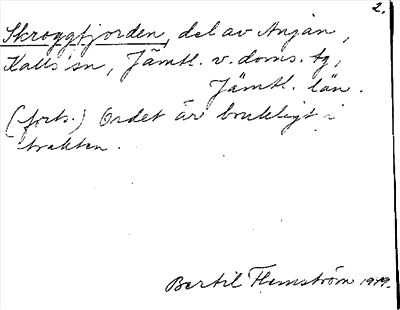 2.
Skroggfjorden, del av Anjan,
Kalls sn, Jämtl. v. doms. tg,
Jämtl. län.
(forts.) Ordet är brukligt i
trakten.
Bertil Flemström 1979.